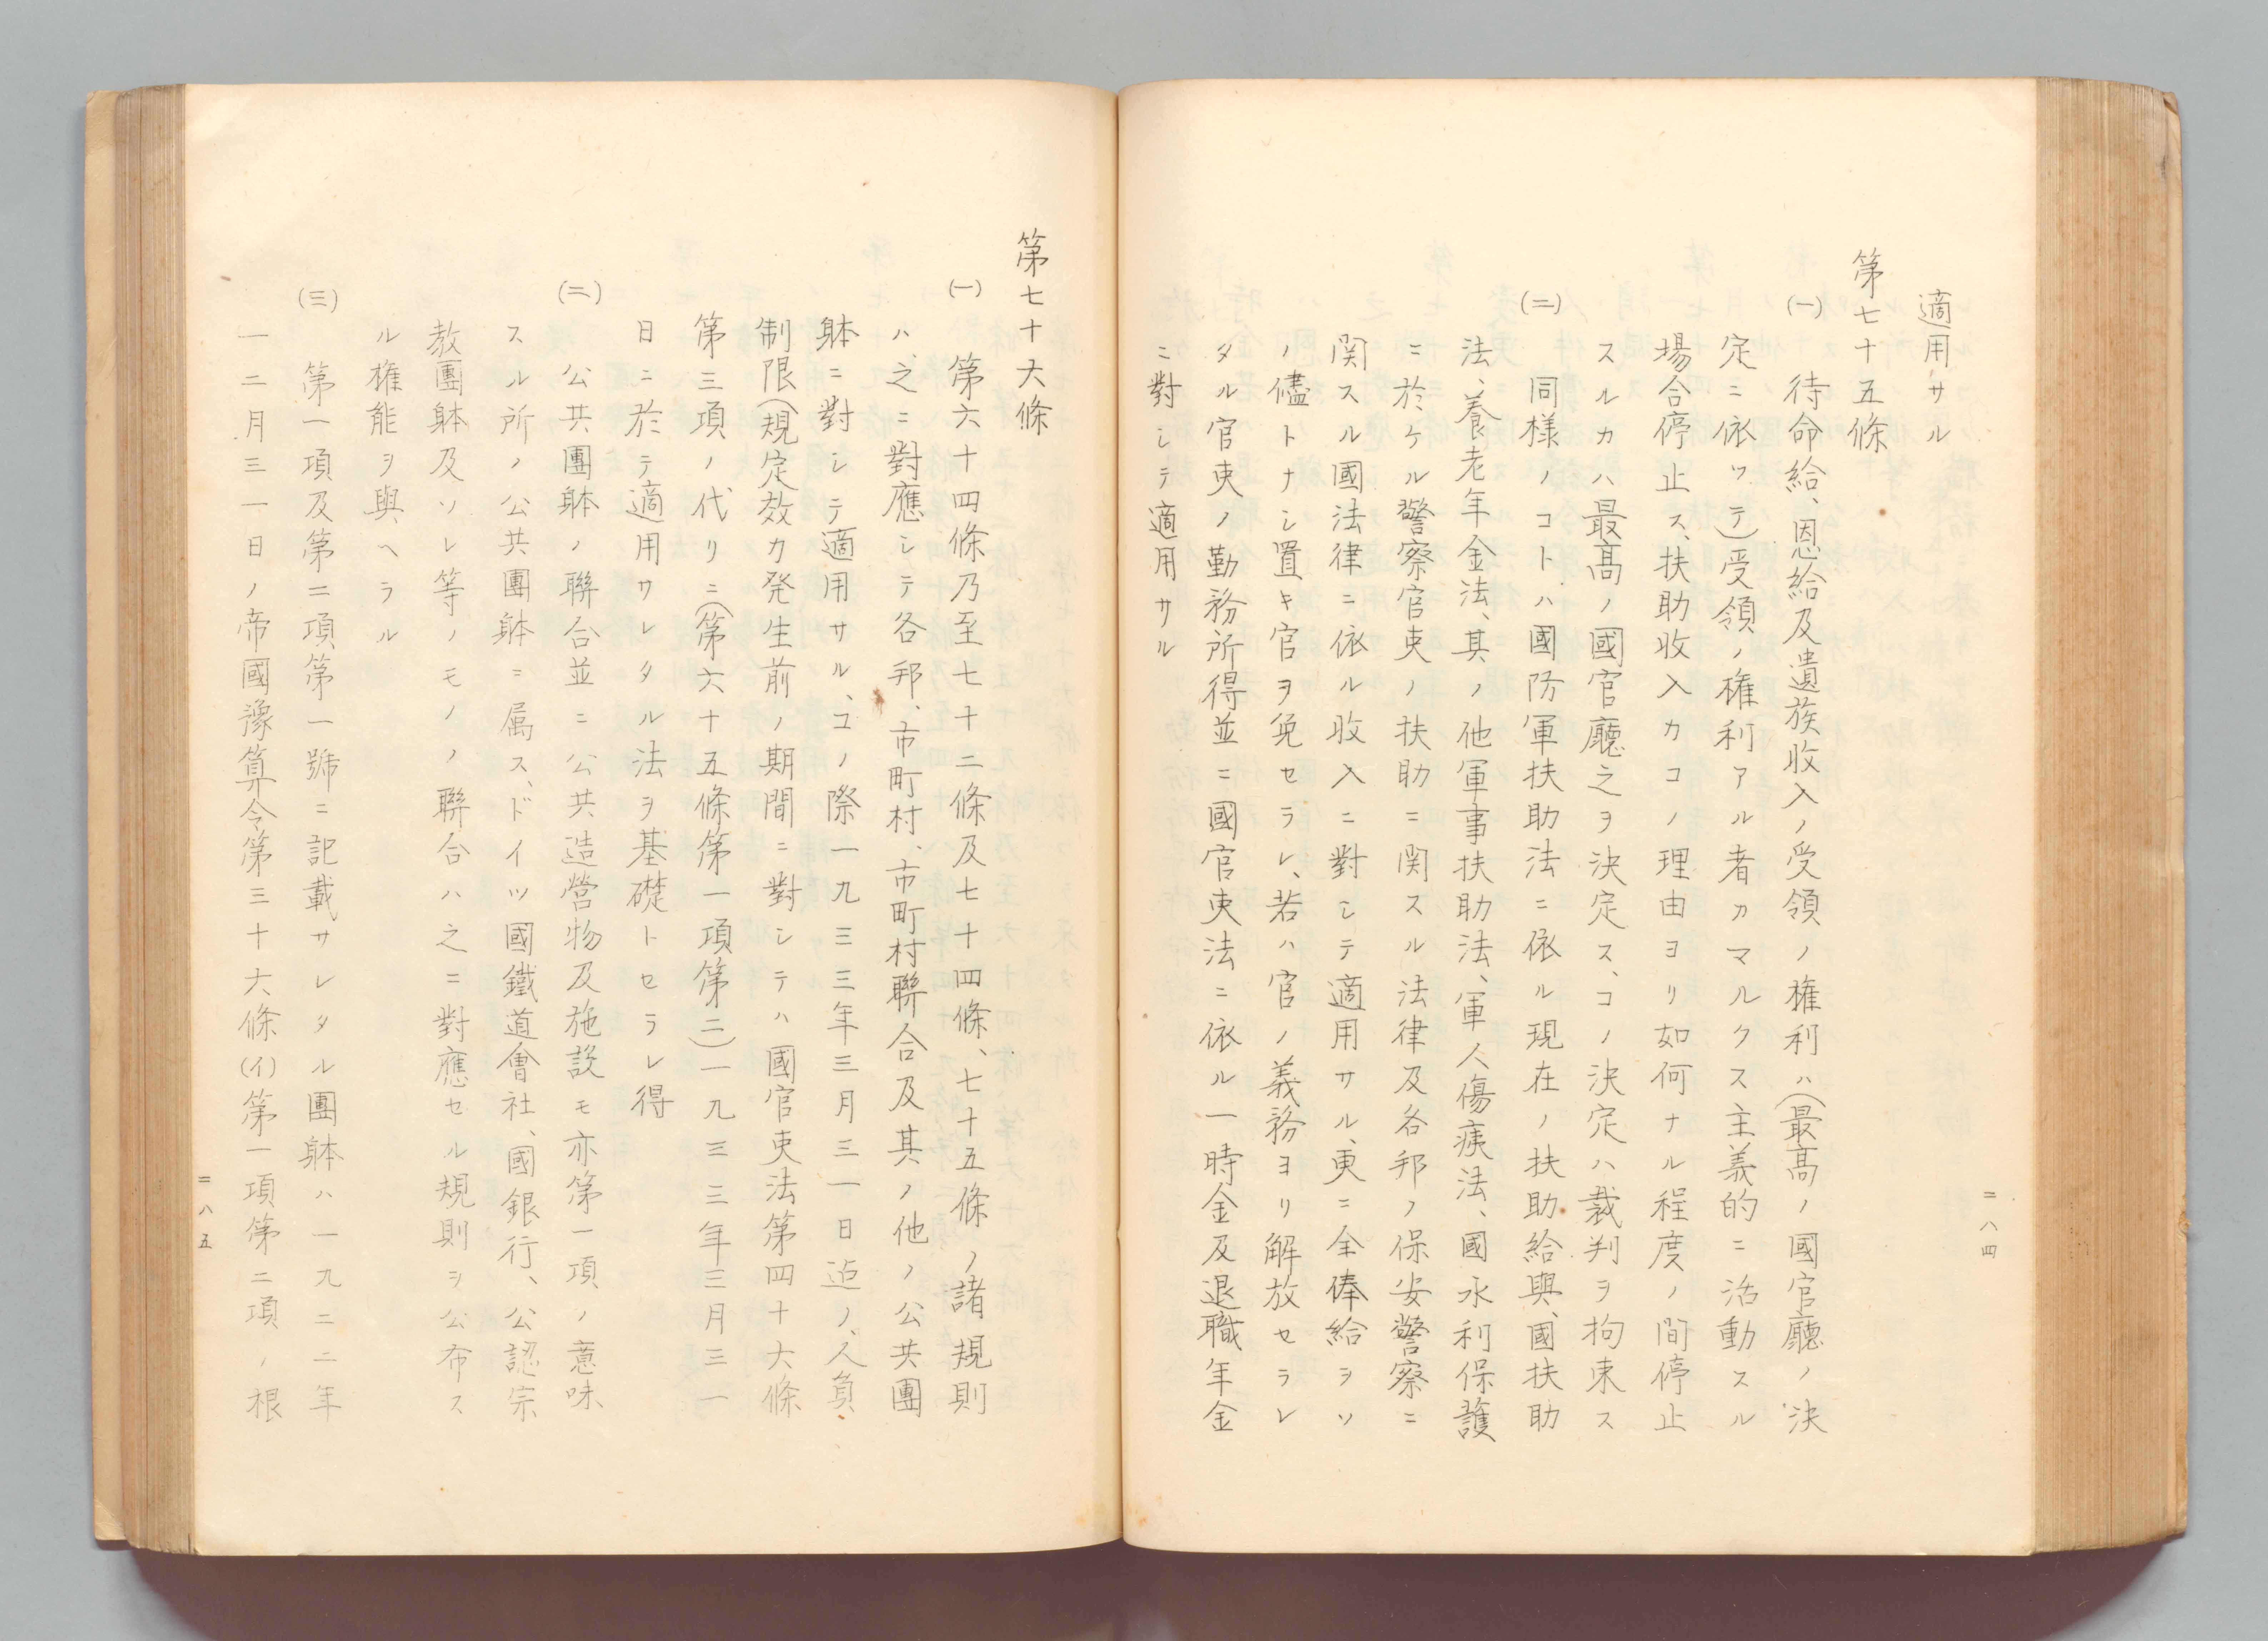 適用サル
第七十五條
(一) 待命給、恩給及遺族收入ノ受領ノ権利ハ(最高ノ國官廳ノ決
定ニ依ツテ)受領ノ権利アル者カマルクス主義的ニ活動スル
場合停止ス、扶助收入カコノ理由ヨリ如何ナル程度ノ間停止
スルカハ最高ノ國官廳之ヲ決定ス、コノ決定ハ裁判ヲ拘束ス
(二) 同様ノコトハ國防軍扶助法ニ依ル現在ノ扶助給與、國扶助
法、養老年金法、其ノ他軍事扶助法、軍人傷痍法、國水利保護
ニ於ケル警察官吏ノ扶助ニ関スル法律及各邦ノ保安警察ニ
関スル國法律ニ依ル收入ニ對シテ適用サル、更ニ全俸給ヲソ
ノ儘トナシ置キ官ヲ免セラレ、若ハ官ノ義務ヨリ解放セラレ
タル官吏ノ勤務所得並ニ國官吏法ニ依ル一時金及退職年金
ニ對シテ適用サル
二八四
第七十六條
(一) 第六十四條乃至七十二條及七十四條、七十五條ノ諸規則
ハ之ニ對應シテ各邦、市町村、市町村聯合及其ノ他ノ公共團
躰ニ對シテ適用サル、コノ際一九三三年三月三一日迠ノ人員
制限(規定效力発生前ノ期間ニ對シテハ國官吏法第四十六條
第三項ノ代リニ(第六十五條第一項第二)一九三三年三月三一
日ニ於テ適用サレタル法ヲ基礎トセラレ得
(二) 公共團躰ノ聯合並ニ公共造營物及施設モ亦第一項ノ意味
スル所ノ公共團躰ニ属ス、ドイツ國鐵道會社、國銀行、公認宗
教團躰及ソレ等ノモノノ聯合ハ之ニ對應セル規則ヲ公布ス
ル権能ヲ與ヘラル
(三) 第一項及第二項第一號ニ記載サレタル團躰ハ一九二二年
一二月三一日ノ帝國豫算令第三十六條(イ)第一項第二項ノ根
二八五